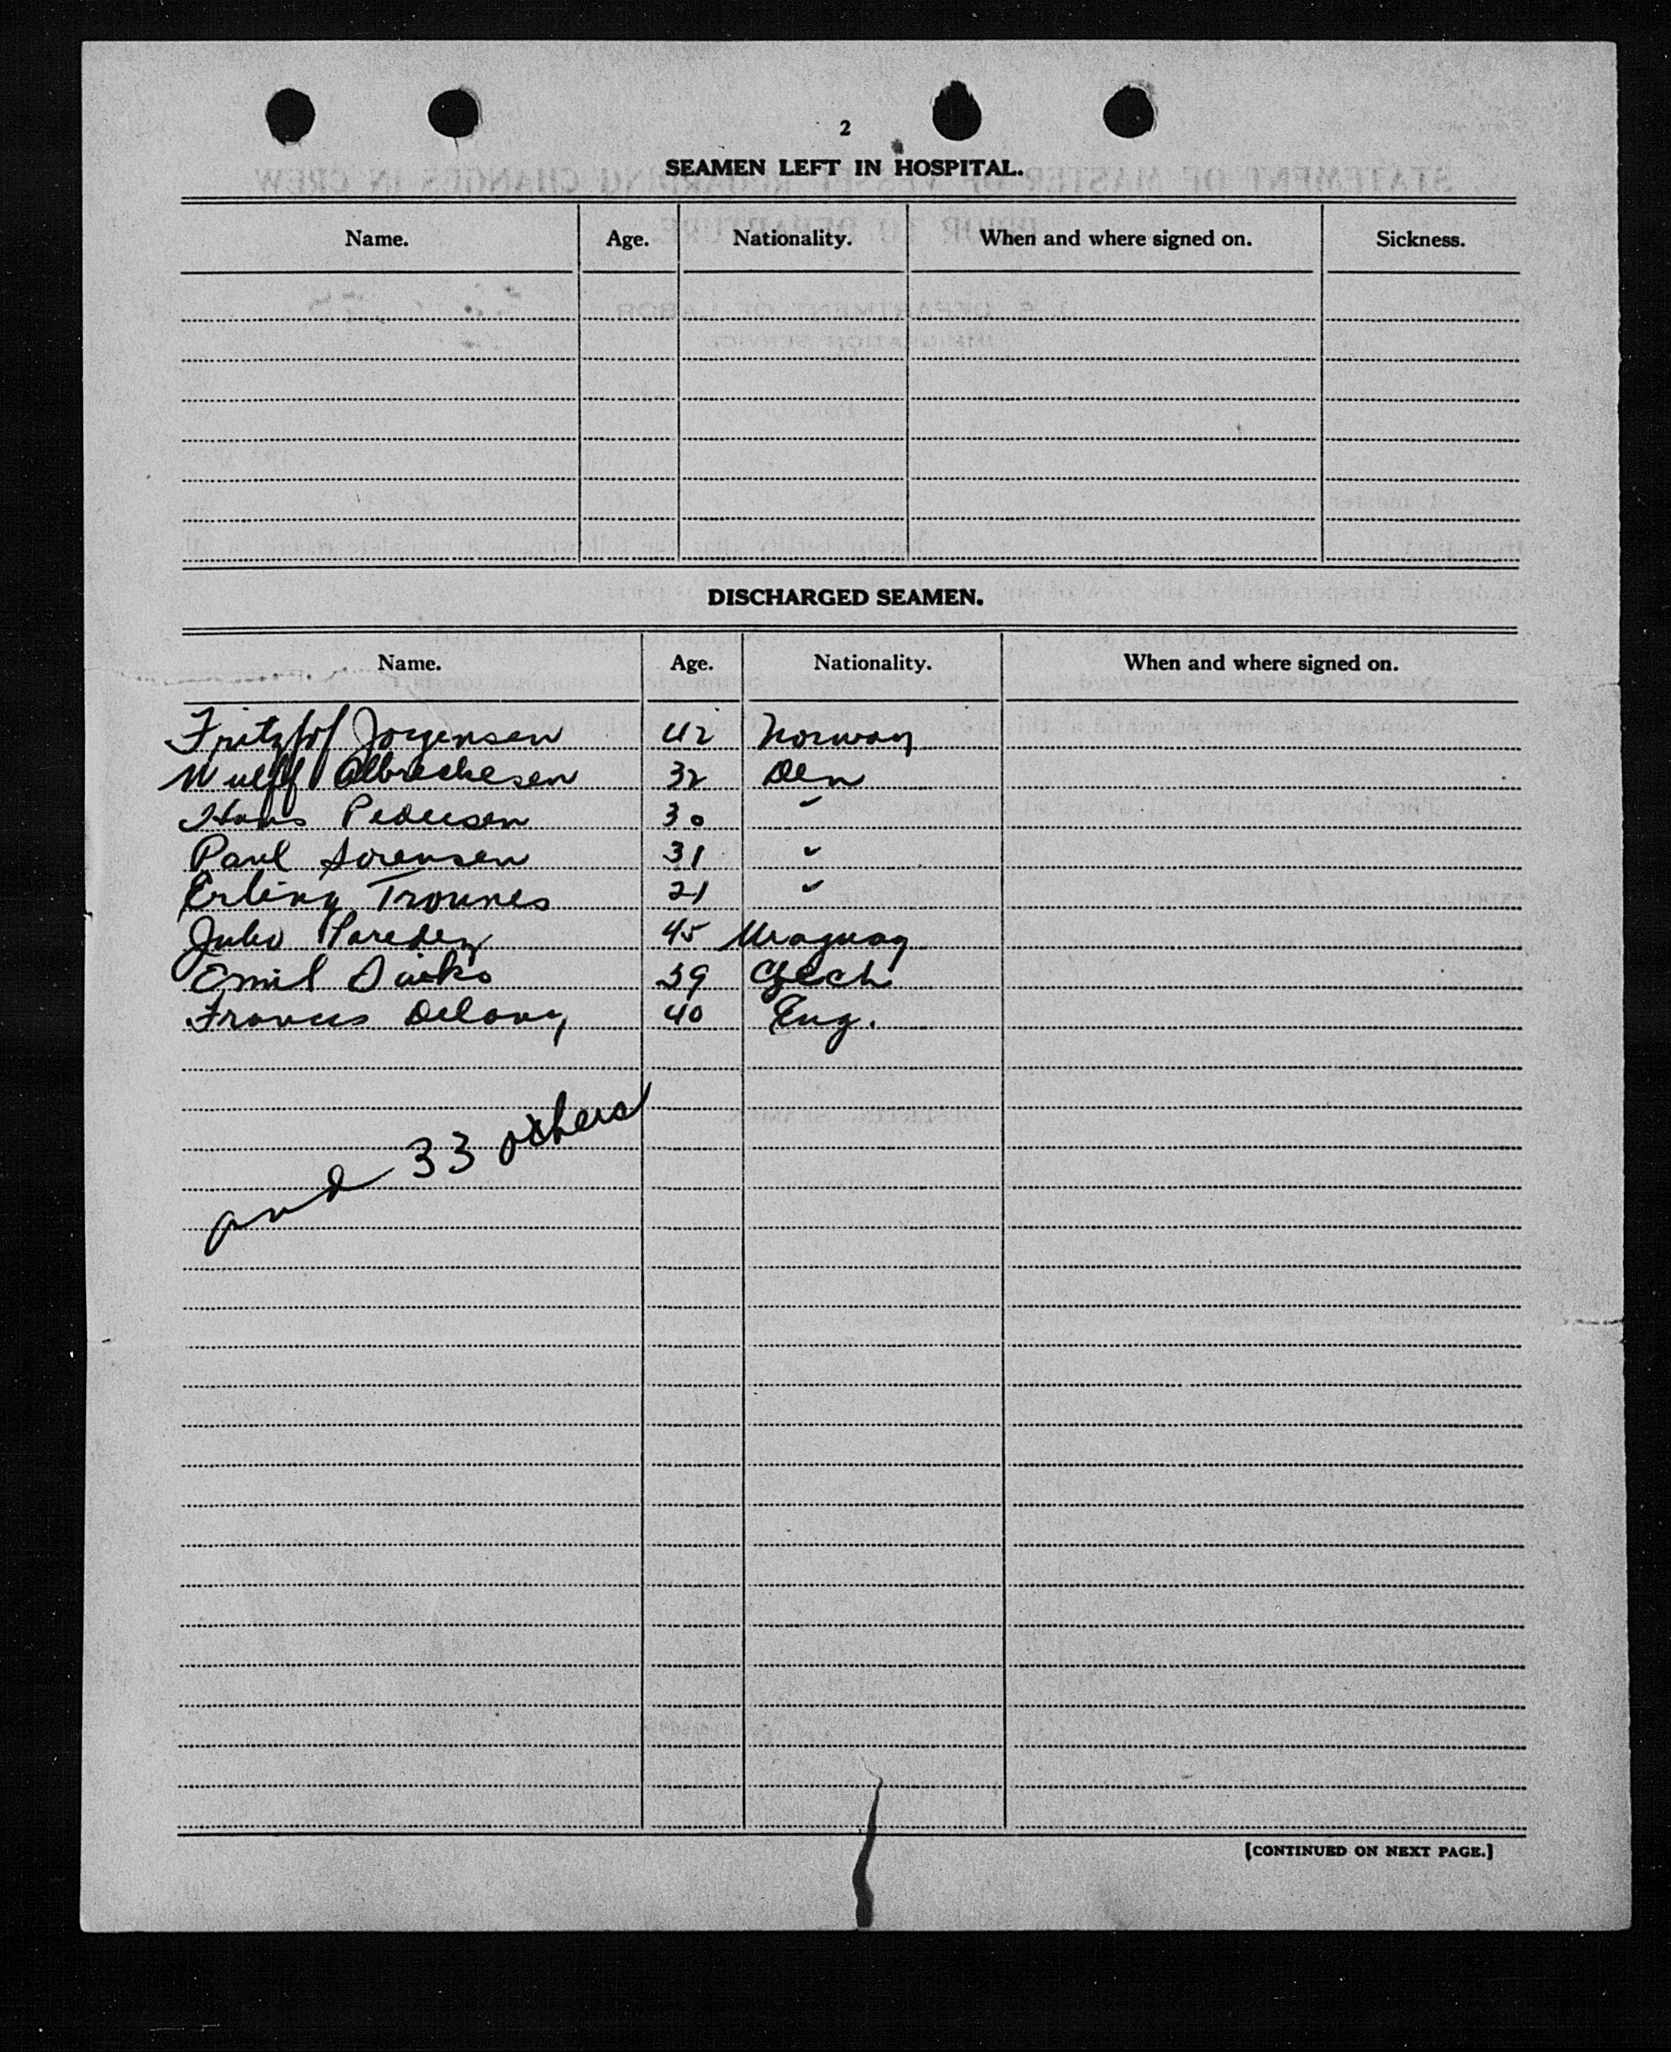 2
SEAMEN LEFT IN HOSPITAL.
Name. Age. Nationality. When and where signed on. Sickness.
DISCHARGED SEAMEN.
Name. Age. Nationality. When and where signed on.
Fritzhof Jorgensen 42 Norway
Wulff Albrechesen 32 Den
Hans Pedersen 30 "
Paul Sorensen 31 "
Erling Trounes 21 "
Julio Paredez 45 Uraguay
Emil 39 Czech
Francis Delany 40 Eng.
and 33 others
[CONTINUED ON NEXT PAGE.]